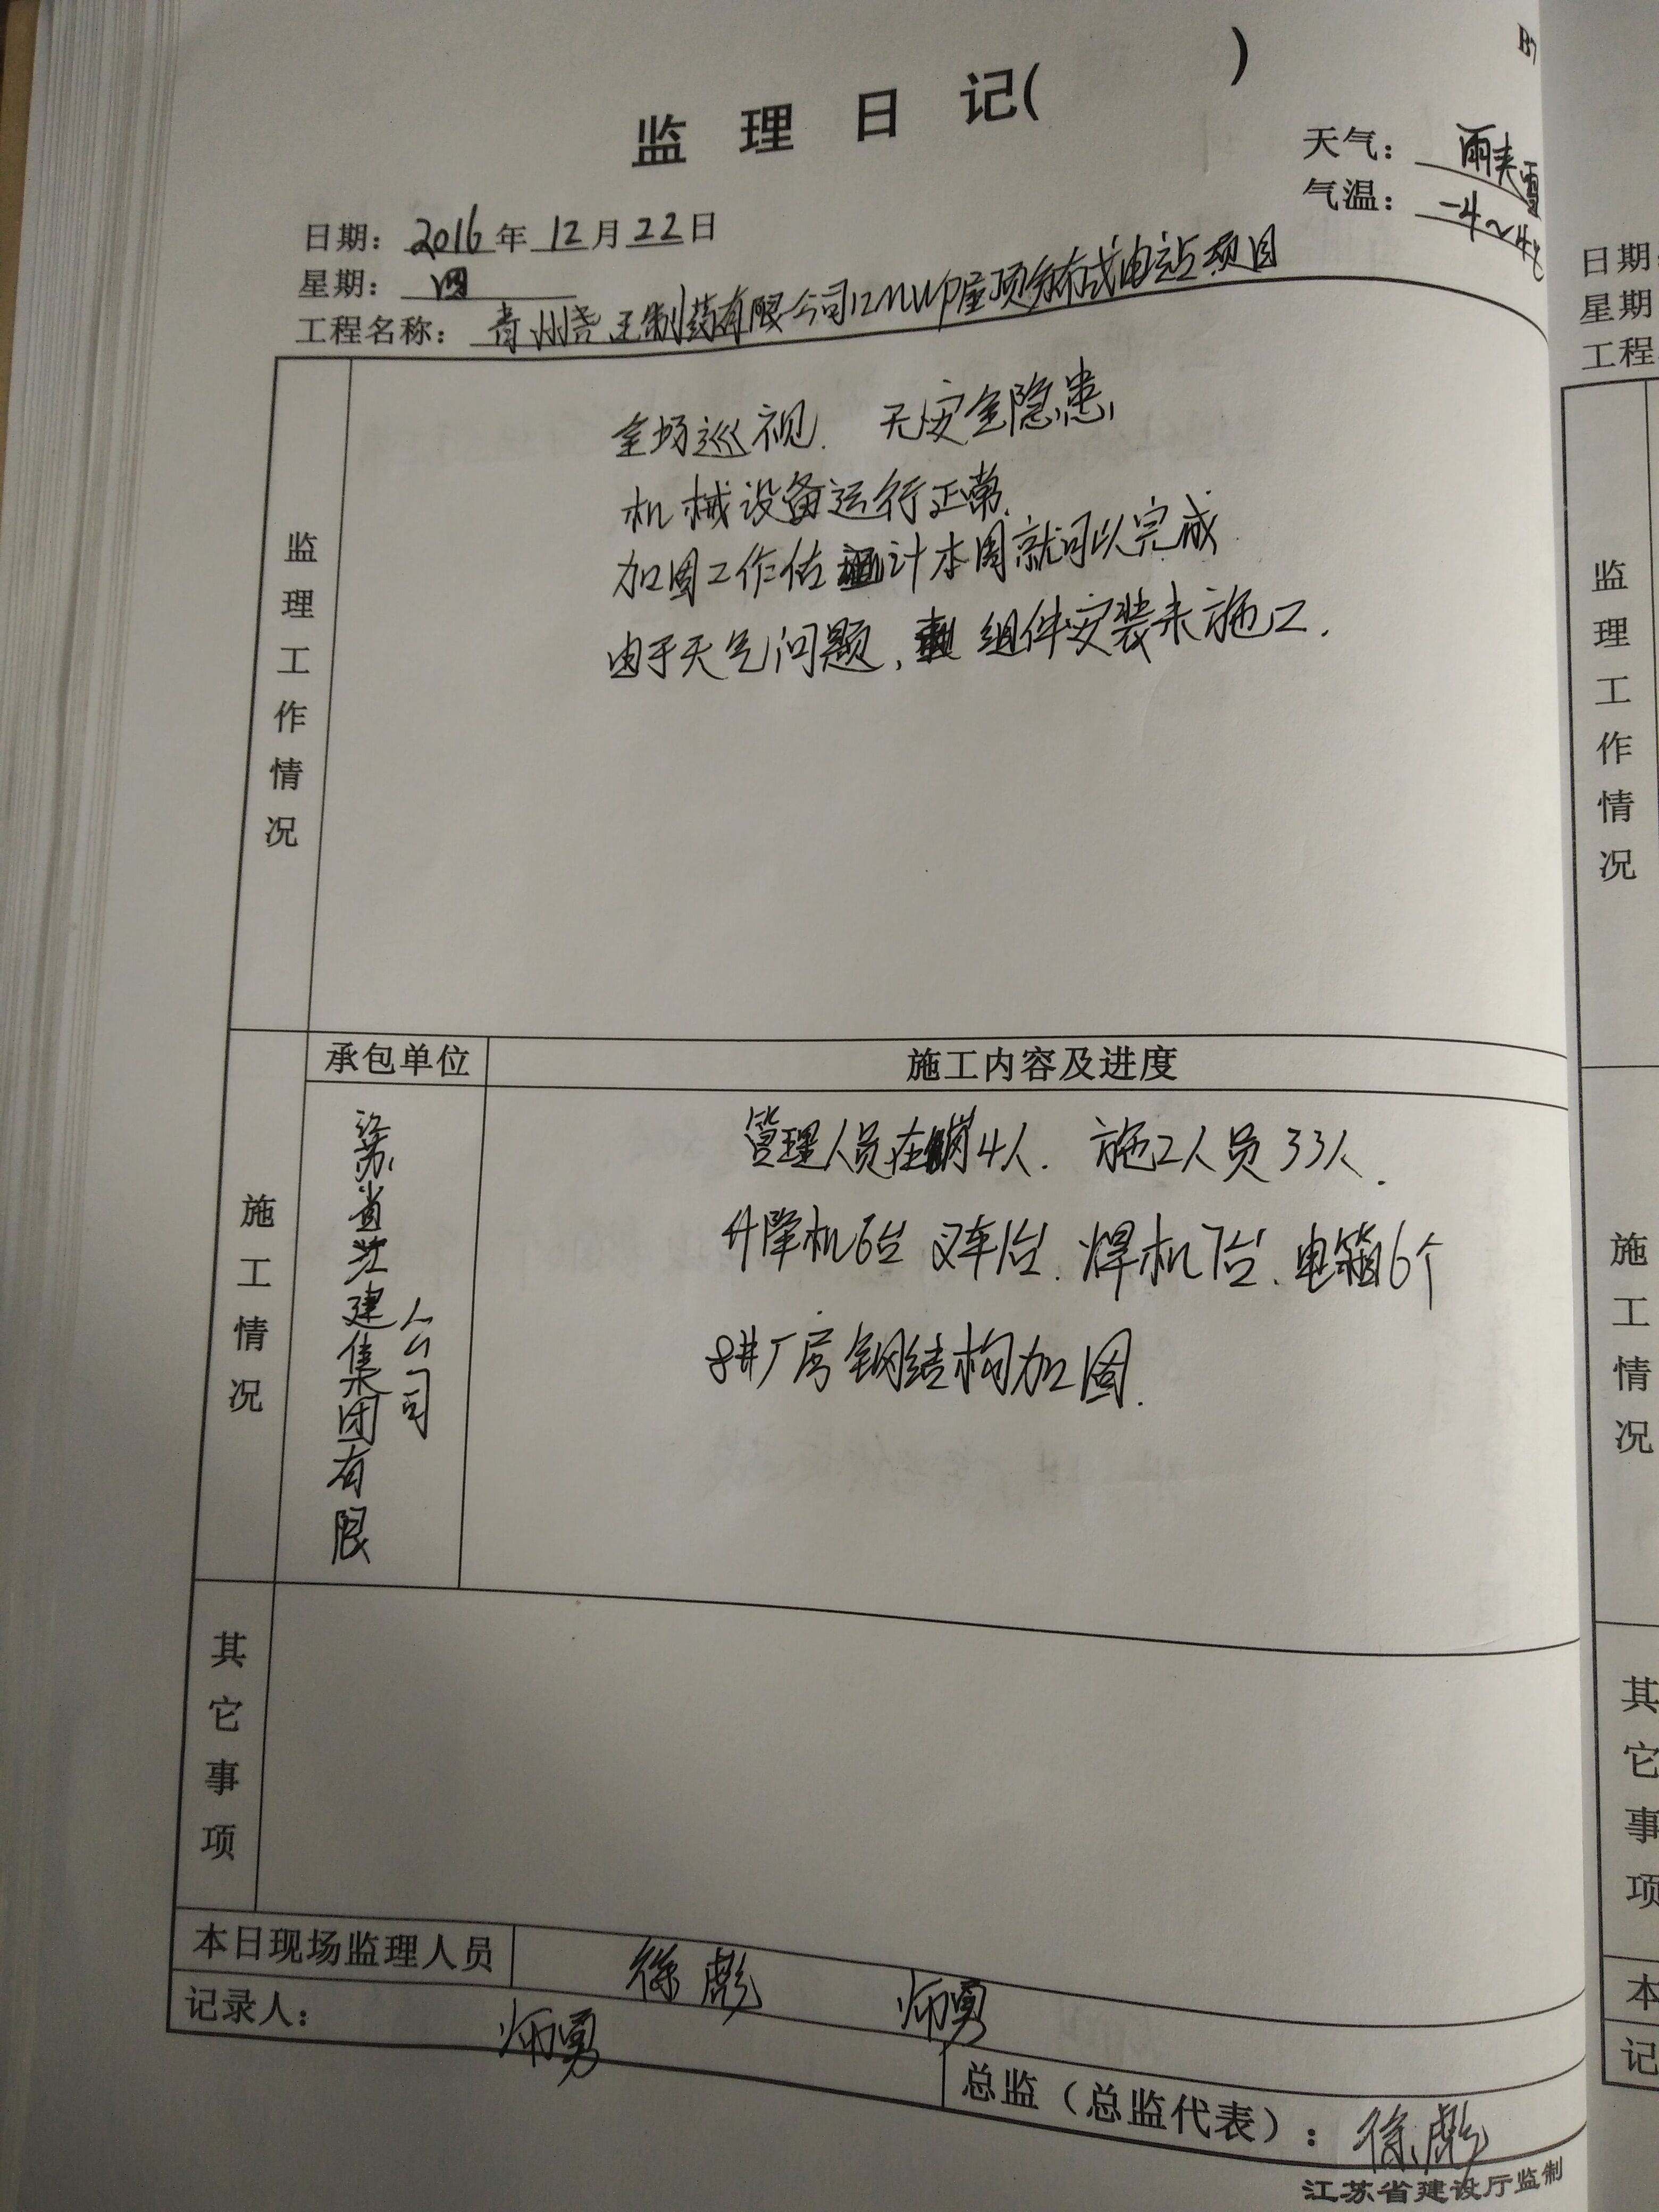 监 理 日 记( )
天气：雨夹雪
气温：-4~4℃
日期：2016年12月22日
星期：四
工程名称：青州尧王制药有限公司12MWp屋顶分布式电站项目
监理工作情况
全场巡视. 无安全隐患
机械设备运行正常.
加固工作估计本周就可以完成.
由于天气问题, 组件安装未施工.
施工情况
承包单位
施工内容及进度
江苏省江建集团有限
公司
管理人员在岗4人. 施工人员33人.
升降机6台 叉车1台. 焊机7台. 电箱6个
8#厂房钢结构加固.
其它事项
本日现场监理人员 徐彪
记录人：
总监（总监代表）：徐彪
江苏省建设厅监制
日期
星期
工程
监理工作情况
施工情况
其它事项
本
记